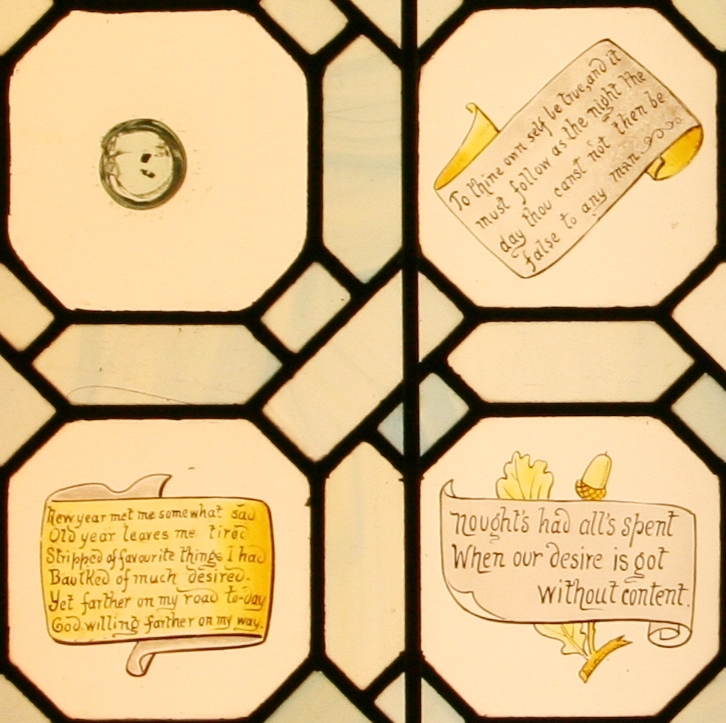 To thine own self be true, and it
must follow as the night the
day thou canst not then be
false to any man.
New year met me somewhat sad
Old year leaves me tired
Stripped of favourite things I had
Baulked of much desired.
Yet farther on my road to-day
God willing farther on my way.
Nought's had all's spent
When our desire is got
without content.